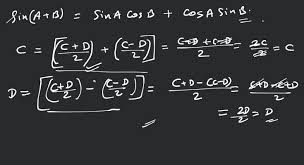 Sin(A+B) = SinA CosB + CosA SinB.
C = [(C+D)/2] + [(C-D)/2] = (C+D + C-D)/2 = 2C/2 = C
D = [(C+D)/2) - (C-D)/2)] = (C+D-(C-D))/2 = (C+D-C+D)/2
= 2D/2 = D